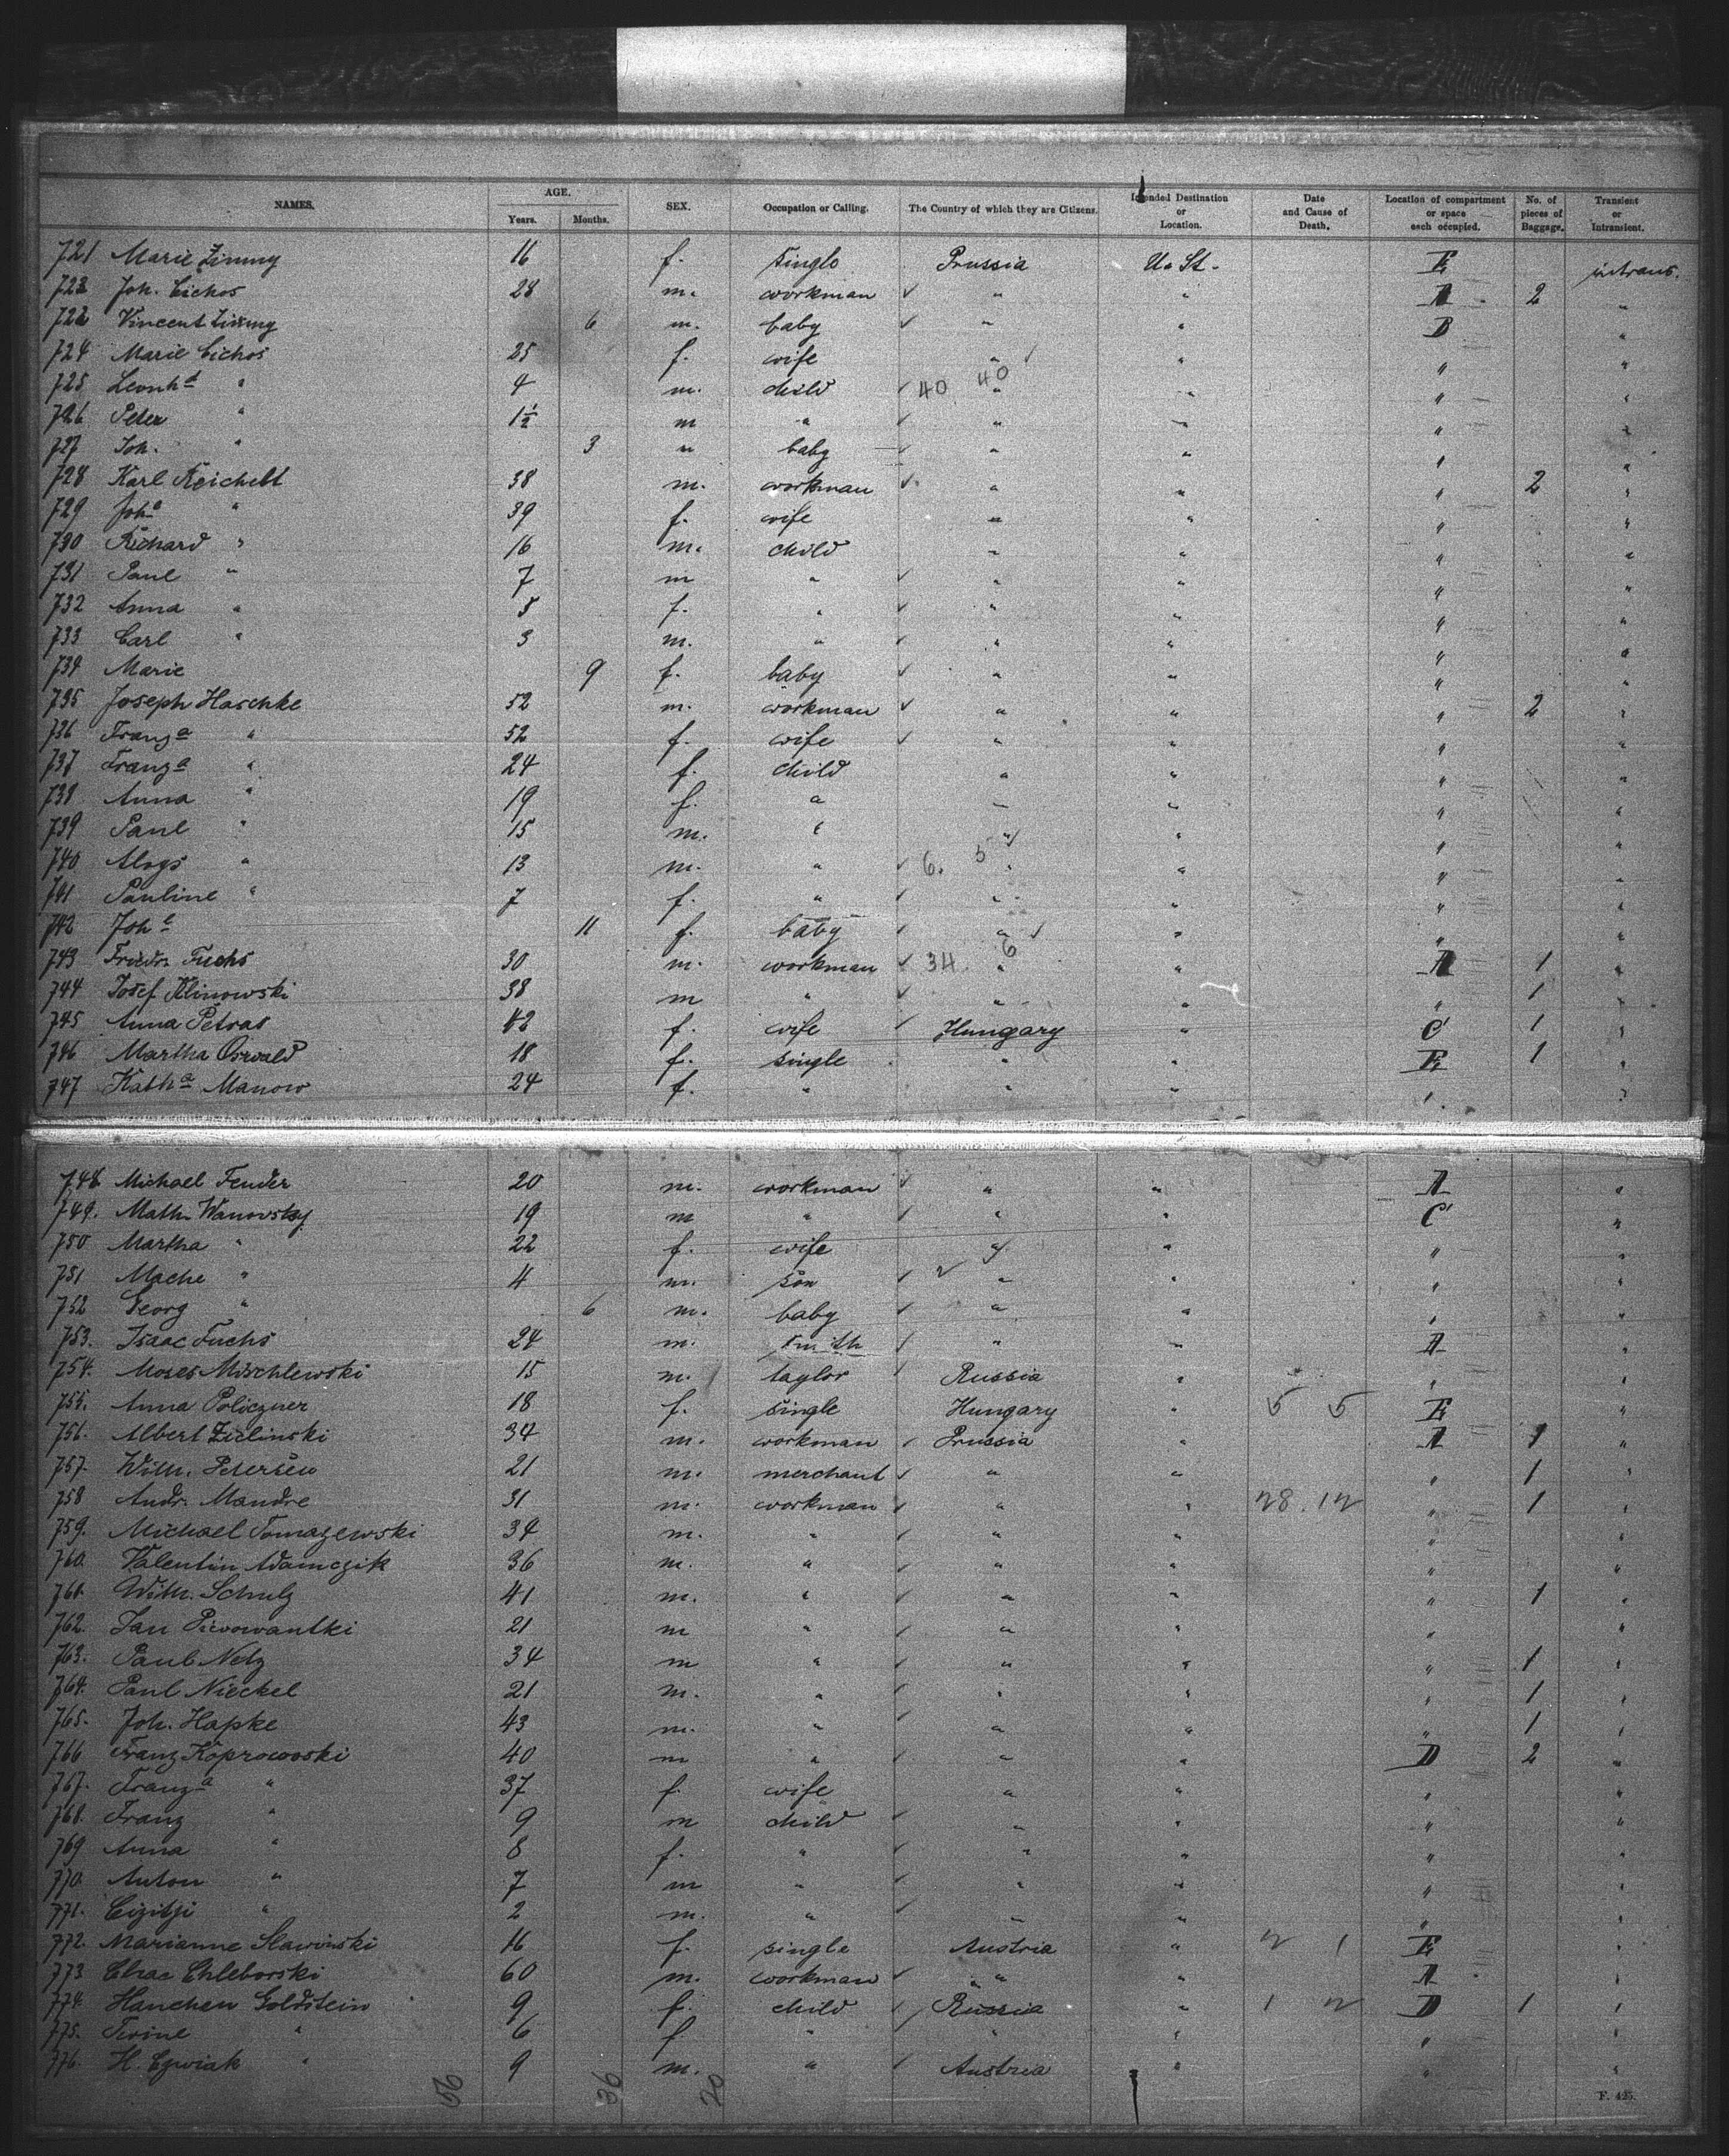 NAMES. AGE. Years. Months. SEX. Occupation or Calling. The Country of which they are Citizens. Intended Destination or Location. Date and Cause of Death. Location of compartment or space each occupied. No. of pieces of Baggage. Transient or Intransient.
721 Marie Zimny 16 f. single Prussia U. St. E intrans.
723 Joh. Cichos 28 m. workman " " A 2 "
722 Vincent Zimny 6 m. baby " " D "
724 Marie Cichos 25 f. wife " " " "
725 Leonhd " 4 m. child 40 40 " " " "
726 Peter " 1½ m " " " " "
727 Joh. " 3 " baby " " " "
728 Karl Reichelt 38 m. workman " " " 2 "
729 Joha " 39 f. wife " " " "
730 Richard " 16 m. child " " " "
731 Paul " 7 m " " " " "
732 Anna " 5 f. " " " " "
733 Carl " 3 m. " " " " "
734 Marie 9 f. baby " " " "
735 Joseph Haschke 52 m. workman " " " 2 "
736 Franza " 52 f. wife " " " "
737 Franza " 24 f. child " " " "
738 Anna " 19 f. " " " " "
739 Paul " 15 m. " " " " "
740 Aloys " 13 m. " 6. 5 " " " "
741 Pauline " 7 f. " " " " "
742 Joha 11 f. baby " " " "
743 Friedr. Fuchs 30 m. workman 34 6 " " A 1 "
744 Josef Klinowski 38 m " " " " 1 "
745 Anna Petras 42 f. wife Hungary " C 1 "
746 Martha Oswald 18 f. single " " E 1 "
747 Katha Manow 24 f. " " " " "
748 Michael Fender 20 m. workman " " A "
749. Math. Wanovsky 19 m " " " C "
750 Martha " 22 f. wife " " " "
751 Mache " 4 m. son 2 " " " "
752 Georg " 6 m. baby " " " "
753. Isaac Fuchs 24 m. smith " " A "
754. Moses Mischlewski 15 m. taylor Russia " " "
755. Anna Policzner 18 f. single Hungary " 5 5 E "
756. Albert Zielinski 34 m. workman Prussia " A 1 "
757. Wilh. Petersen 21 m. merchant " " " 1 "
758 Andr. Mandre 31 m. workman " " 28. 12 " 1 "
759. Michael Tomazewski 34 m. " " " " "
760. Valentin Adamczik 36 m. " " " " "
761. Wilh. Schulz 41 m. " " " " 1 "
762. Jan Piwowantki 21 m " " " " "
763. Paul Netz 34 m " " " " 1 "
764. Paul Nieckel 21 m. " " " " 1 "
765. Joh. Hapke 43 m. " " " " 1 "
766 Franz Koprowoski 40 m " " " D 2 "
767. Franza " 37 f. wife " " " "
768. Franz " 9 m child " " " "
769 Anna " 8 f. " " " " "
770. Anton " 7 m " " " " "
771. Cizitzi " 2 m. " " " " "
772. Marianne Slawinski 16 f. single Austria " 2 1 E "
773 Chleborski 60 m. workman " " " A "
774. Hanchen Goldstein 9 f. child Russia " 1 2 D 1 "
775. " 6 f " " " " "
776. H. Czwiak " 9 m. " Austria " " "
56 36 20
F. 425.